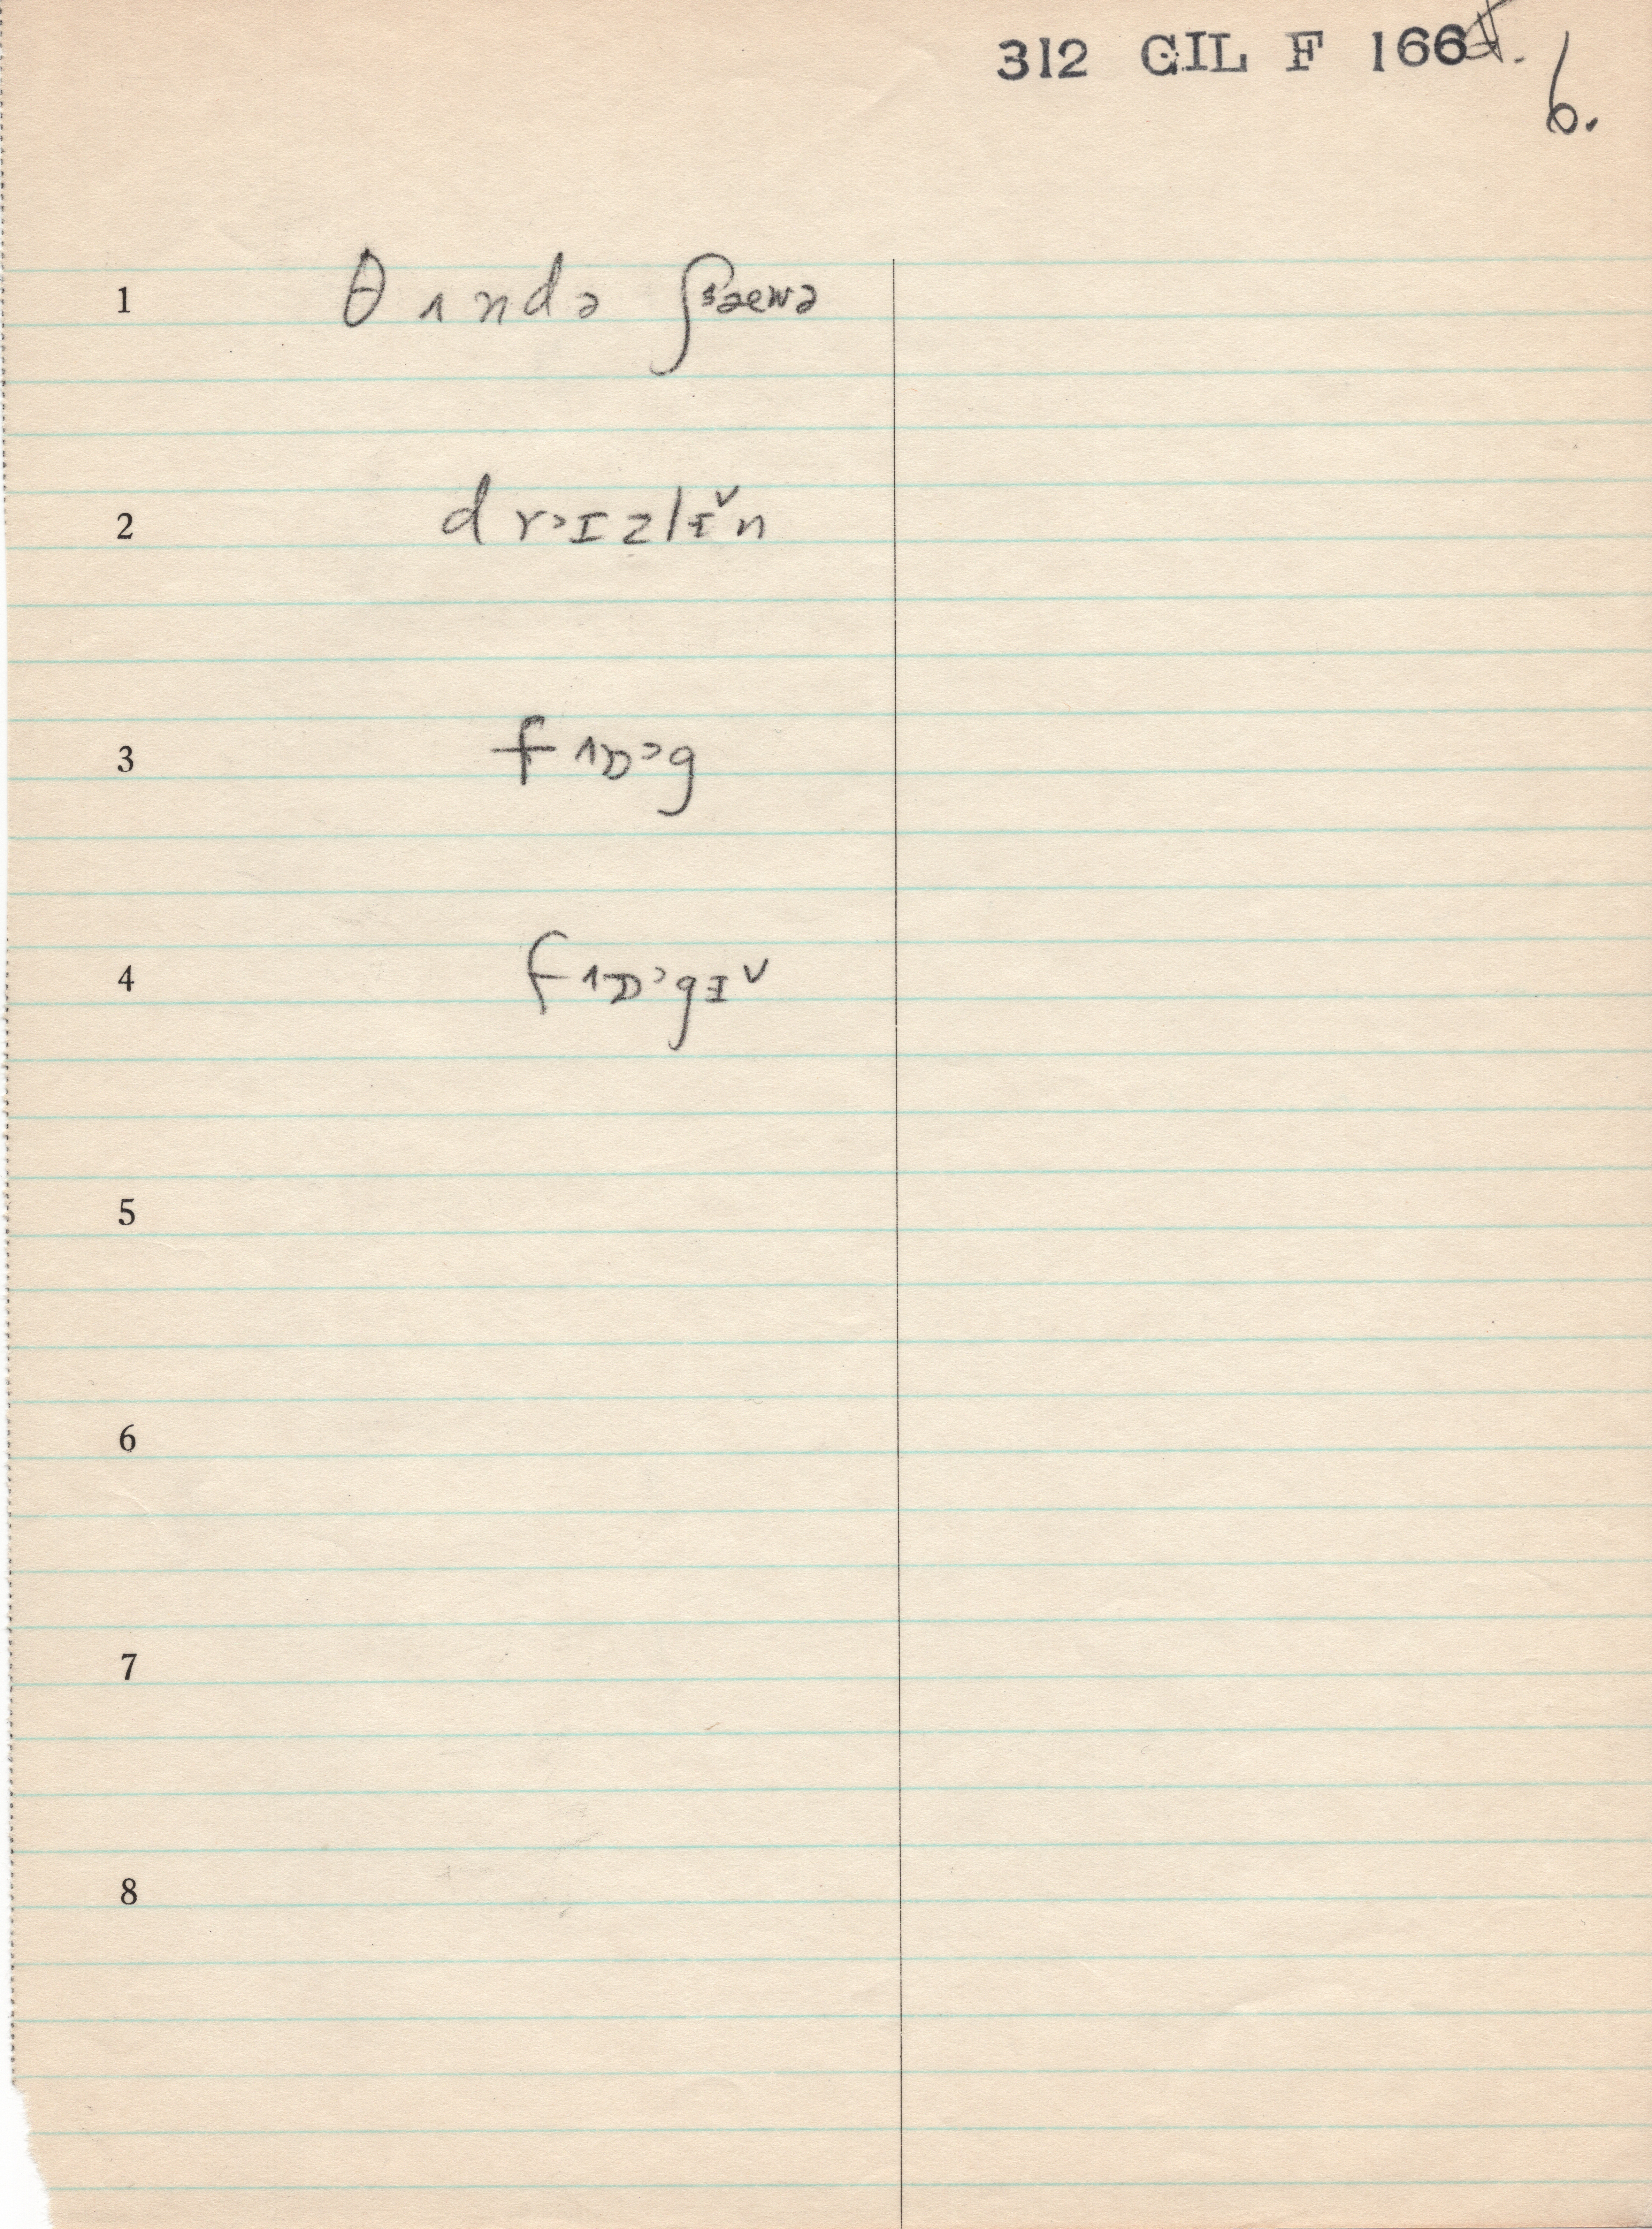 312 GIL F 166
6.
1 θʌndə ʃaewə
2 drɔɪzlɪ̌n
3 fɒɔg
4 fɒɔgɪ̌
5
6
7
8